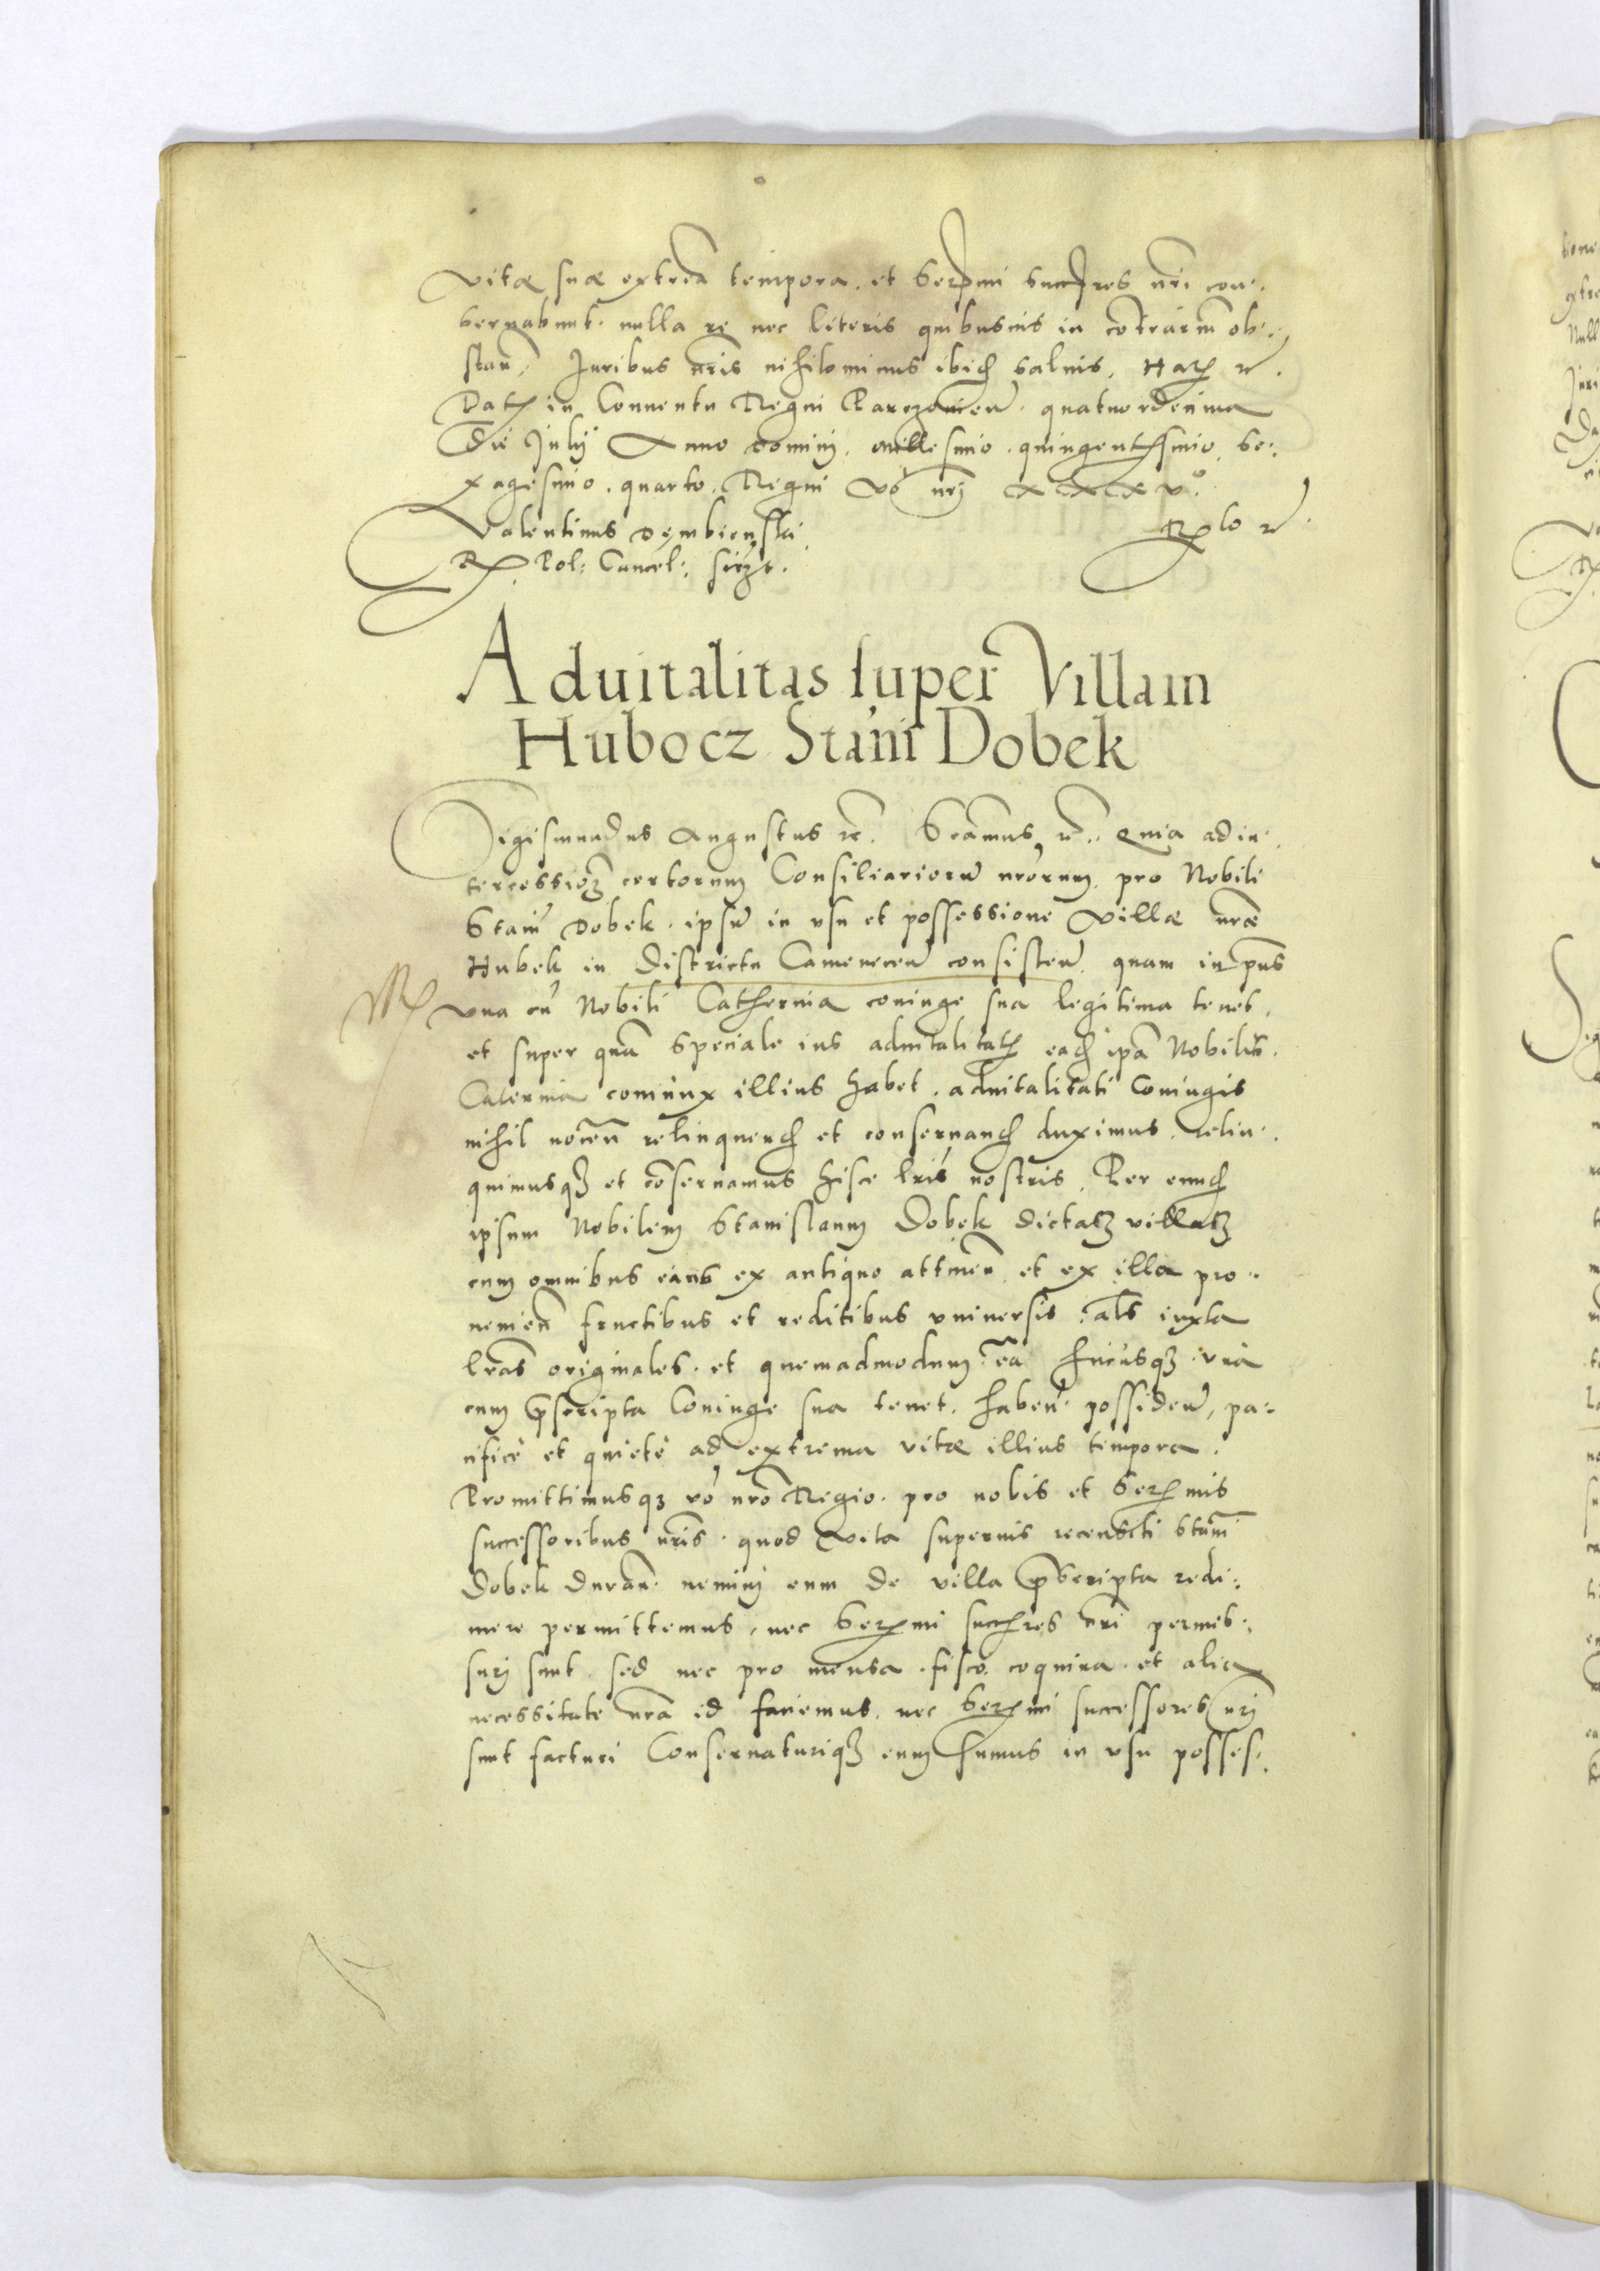 vitæ suæ extrea tempora. et Sermi succres nri con-
servabunt. nulla re nec literis quibusuis in cotrarium ob-
stan. Iuribus nris nihilominus ibid saluis. Har r.
Dat in Conuentu Regni Parczouien. quatuordecima
die Iulij Anno Domini. millesimo. quingentesimo. se-
xagesimo. quarto. Regni vo nrj xxxv°.
Valentinus Dembienski
R Pol: Cancel: sszt.
Rlo r
Aduitalitas super Villam
Hubocz Stani Dobek
Sigismundus Augustus rc. Sēamus r. Quia ad in-
tercessioē certorum Consiliarioru nrorum. pro Nobili
Stani Dobek. ipsu in vsu et possessione Villæ nræ
Hubek in districtu Camenecen consisten. quam in pns
vna cu Nobili Catherina coniuge sua legitima tenet.
et super qua speciale ius aduitalitat ead ipa Nobilis.
Caterina coniunx illius habet. aduitalitati Coniugis
nihil nocen relinquend et conseruand duximus. relin-
quimusq et coseruamus hisce lris nostris. Per eund
ipsum Nobilem Stanislaum Dobek dictam villam
cum omnibus eius ex antiquo attinen et ex illa pro-
uenien fructibus et reditibus vniuersis. als iuxta
lras originales. et quemadmodum ea hucusq. vna
cum pscripta Coniuge sua tenet. haben. possiden, pa-
cifice et quiete ad extrema vitæ illius tempora.
Promittimusq vo nro Regio. pro nobis et Sermis
successoribus nris. quod vita superius recensiti Stani
Dobek duran. nemini eum de villa pscripta redi-
mere permittemus. nec Sermi succres nri permis-
suri sunt. sed nec pro mensa. fisco. coquina. et alia
necessitate nra id faciemus. nec Sermi successores nrj
sunt facturi Conseruaturiq eum sumus in vsu posses-